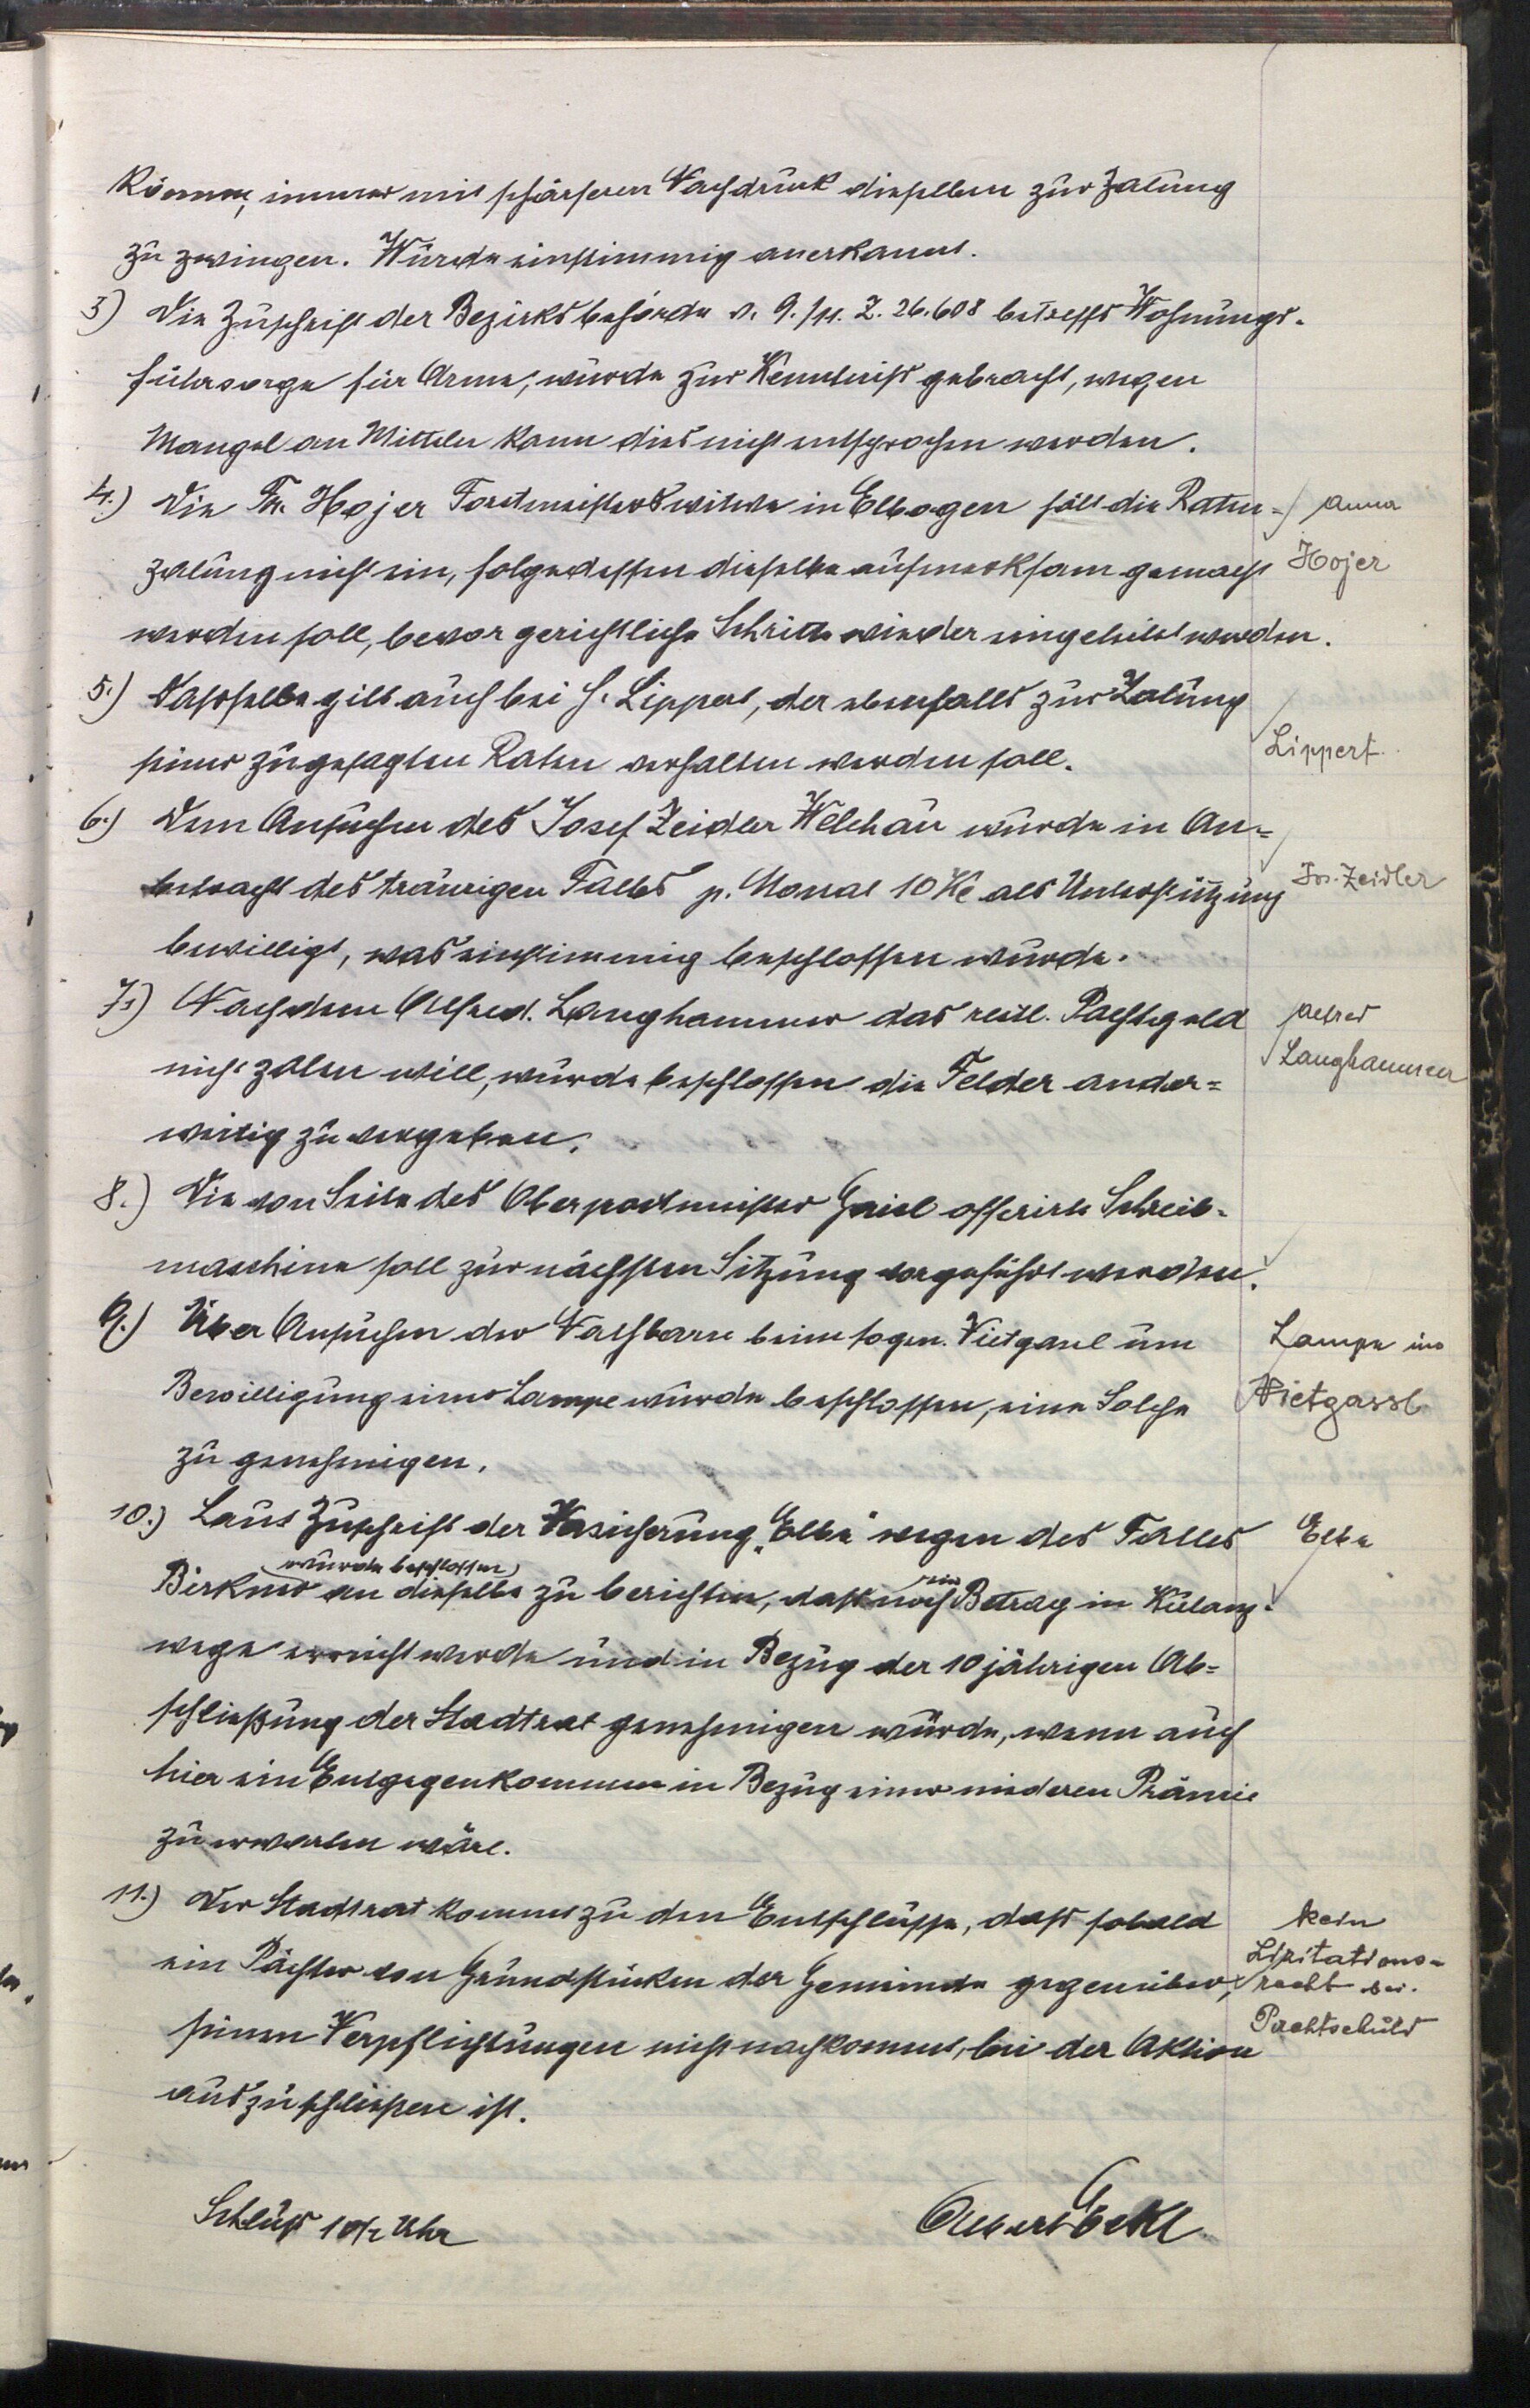 können, immer mit schärferen Nachdruck dieselben zur Zalung
zu zwingen. Wurde einstimmig anerkannt.
3) Die Zuschrift der Bezirksbehörde v. 9./11. Z. 26.608 betreffs Wohnungs-
führsorge für Arme, wurde zur Kenntniß gebracht, wegen
Mangel an Mitteln kann dies nicht entsprochen werden.
4.) Die Fr. Hojer Forstmeisterswitwe in Elbogen hält die Raten-
zalung nicht ein, folgedessen dieselbe aufmerksam gemacht
werden soll, bevor gerichtliche Schritte wieder eingeleitet werden.
Anna
Hojer
5.) Dasselbe gilt auch bei H. Lippert, der ebenfalls zur Zalung
seiner zugesagten Raten verhalten werden soll.
Lippert
6.) Dem Ansuchen des Josef Zeidler Welchau wurde in An-
betracht des traurigen Falles p. Monat 10 Kč als Unterstützung
bewilligt, was einstimmig beschlossen wurde.
Jos. Zeidler
7.) Nachdem Alfred Langhammer das restl. Pachtgeld
nicht zalen will, wurde beschlossen die Felder ander-
weitig zu vergeben.
Alfred
Langhammer
8.) Die von Seite des Oberpostmeister offerirte Schreib-
maschine soll zur nächsten Sitzung vorgeführt werden.
9.) Über Ansuchen der Nachbarn beim sogen. Vietgassl um
Bewilligung einer Lampe wurde beschlossen, eine Solche
zu genehmigen.
Lampe im
Vietgassl
10.) Laut Zuschrift der Versicherung „Elbe" wegen des Falles
wurde beschlossen
Birkner an dieselbe zu berichten, daß noch ein Betrag in Kulanz-
wege erreicht werde und in Bezug der 10 jährigen Ab-
schließung der Stadtrat genehmigen würde, wenn auch
hier ein Entgegenkommen in Bezug einer niederen Prämie
zu erwarten wäre.
Elbe
11.) Der Stadtrat kommt zu den Entschlusse, daß sobald
ein Pächter von Grundstücken der Gemeinde gegenüber,
seinen Verpflichtungen nicht nachkommt, bei der Aktion
auszuschließen ist.
kein
Lizitations-
recht bei
Pachtschuld
Schluß 10½ Uhr
Albert Eckl